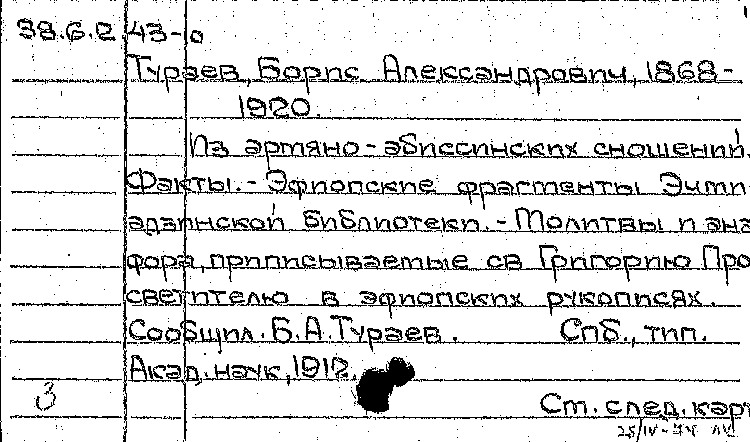 38.6.2.43-0
Тураев, Борис Александрович, 1868-
1920.
Из армяно-абиссинских сношений.
Факты. - Эфиопские фрагменты Эчми
адзинской библиотеки. - Молитвы и ана
фора, приписываемые св Григорию Про
светителю в эфиопских рукописях.
Сообщил. Б.А.Тураев. Спб., тип.
Акад. наук, 1912.
3
См. след. карт